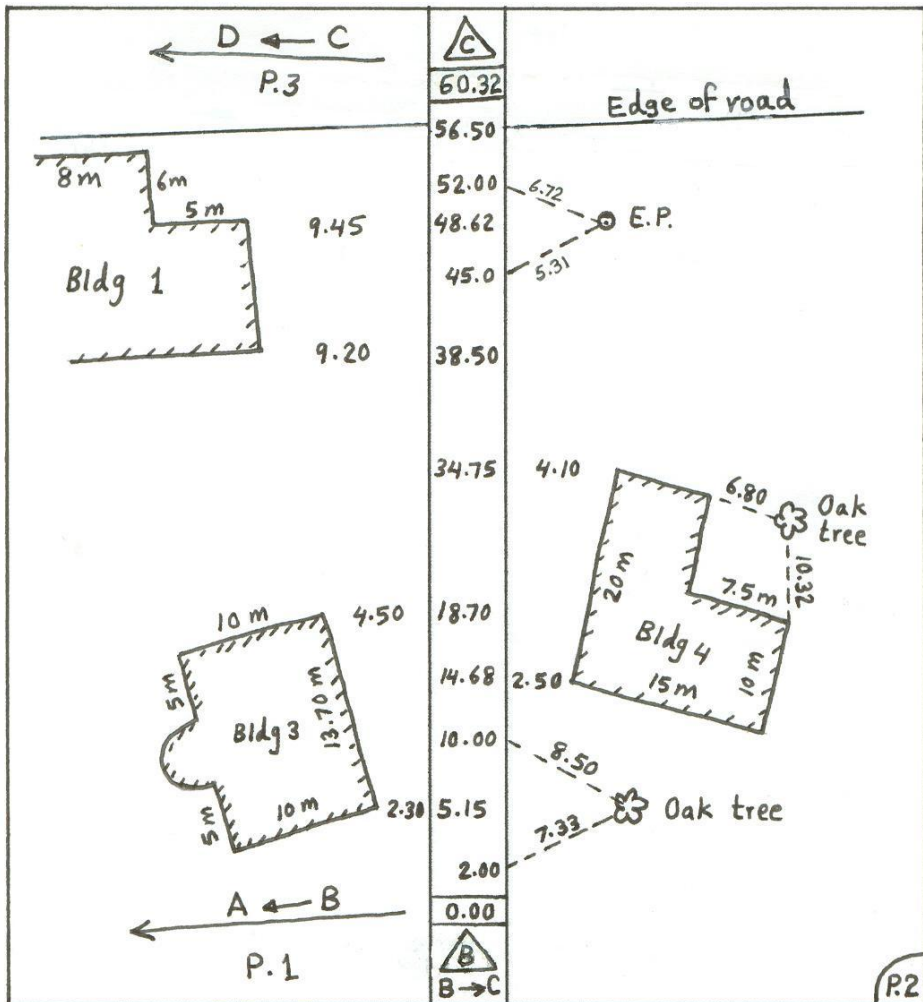 D ← C
P.3
C
60.32
Edge of road
56.50
8m
6m
5m
52.00
6.72
9.45
48.62
E.P.
Bldg 1
45.0
5.31
9.20
38.50
34.75
4.10
6.80
Oak
tree
20m
10.32
7.5m
10 m
4.50
18.70
Bldg 4
10m
5m
13.70m
14.68
2.50
15m
Bldg 3
10.00
8.50
10m
2.30
5.15
Oak tree
5m
7.33
2.00
A ← B
0.00
P.1
B
B→C
P.2